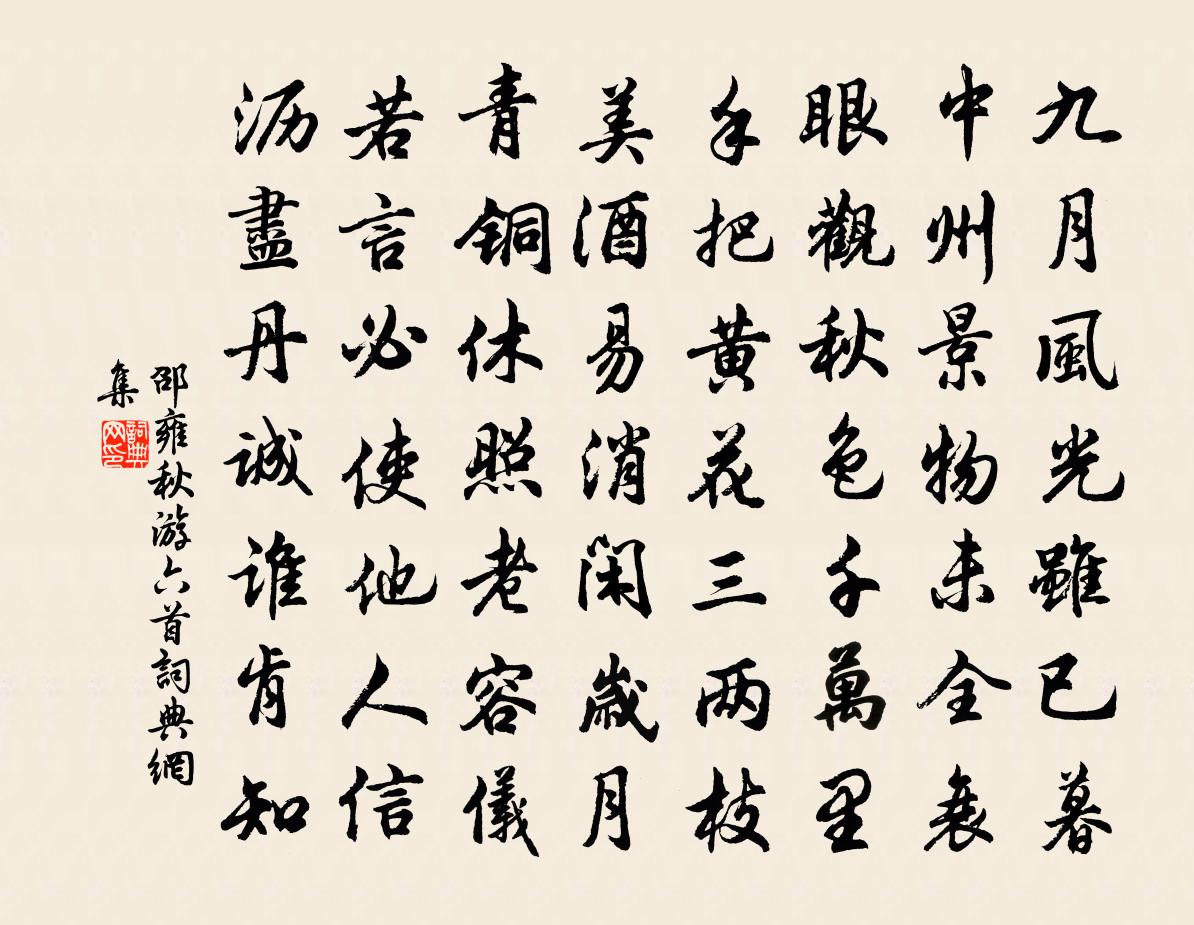 九月風光雖已暮
中州景物未全衰
眼觀秋色千萬里
手把黃花三兩枝
美酒易消閑歲月
青銅休照老容儀
若言必使他人信
沥盡丹誠誰肯知
邵雍秋游六首詞典網
集
詞典网印